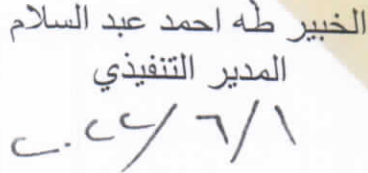 الخبير طه احمد عبد السلام
المدير التنفيذي
٢٠٢٢/٦/١